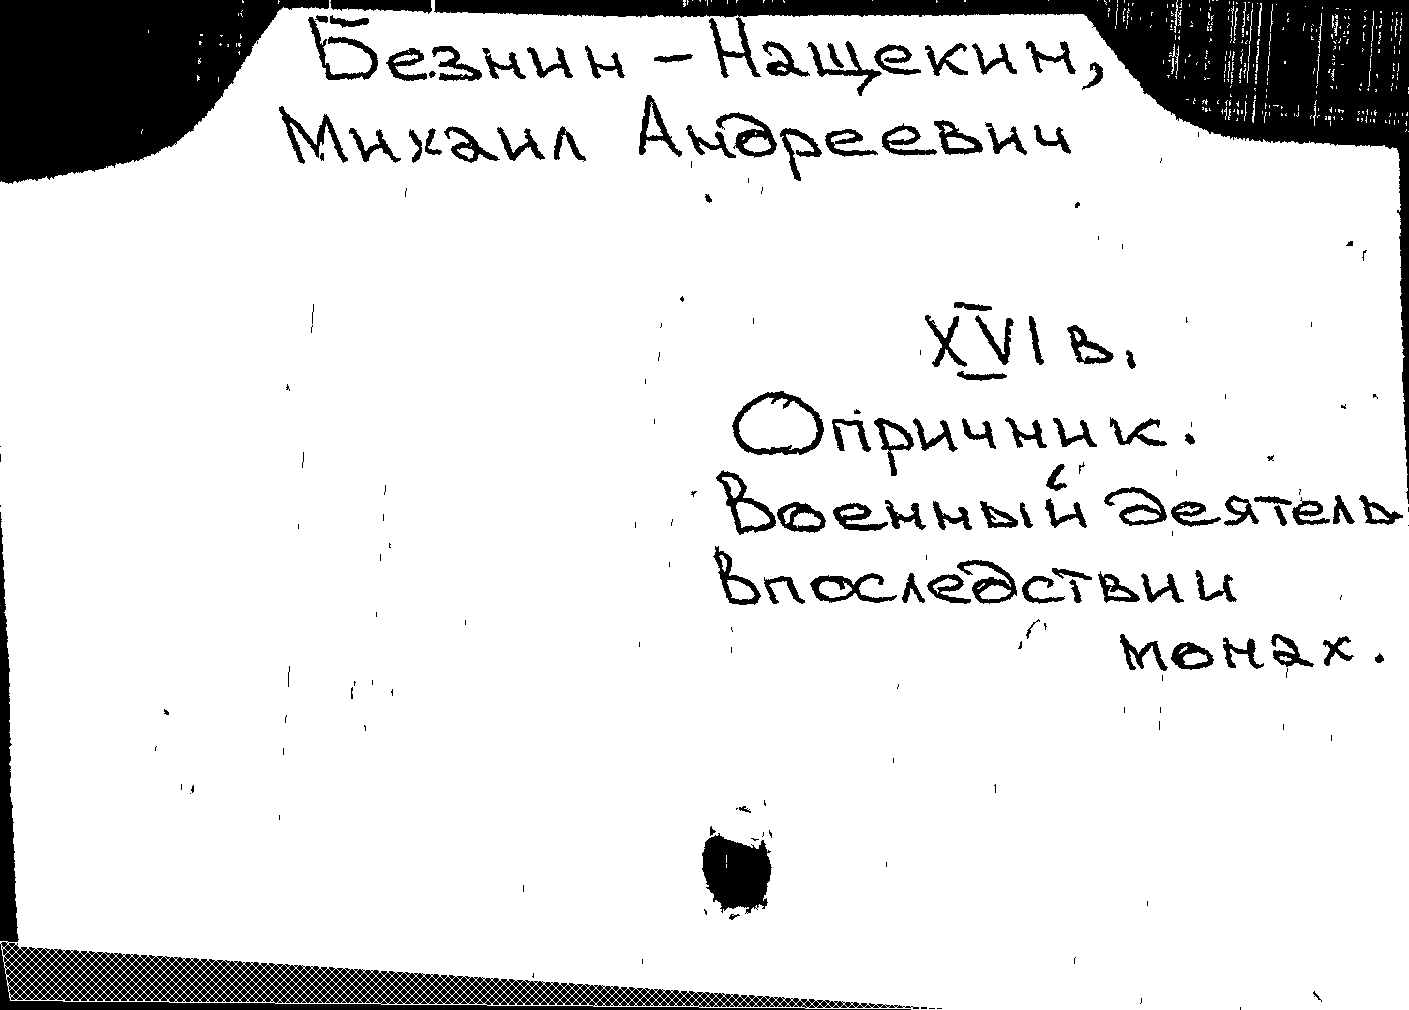 Безнин - Нащекин,
Михаил Андреевич
XVI в.
Опричник.
Военный деятель
впоследствии
монах.